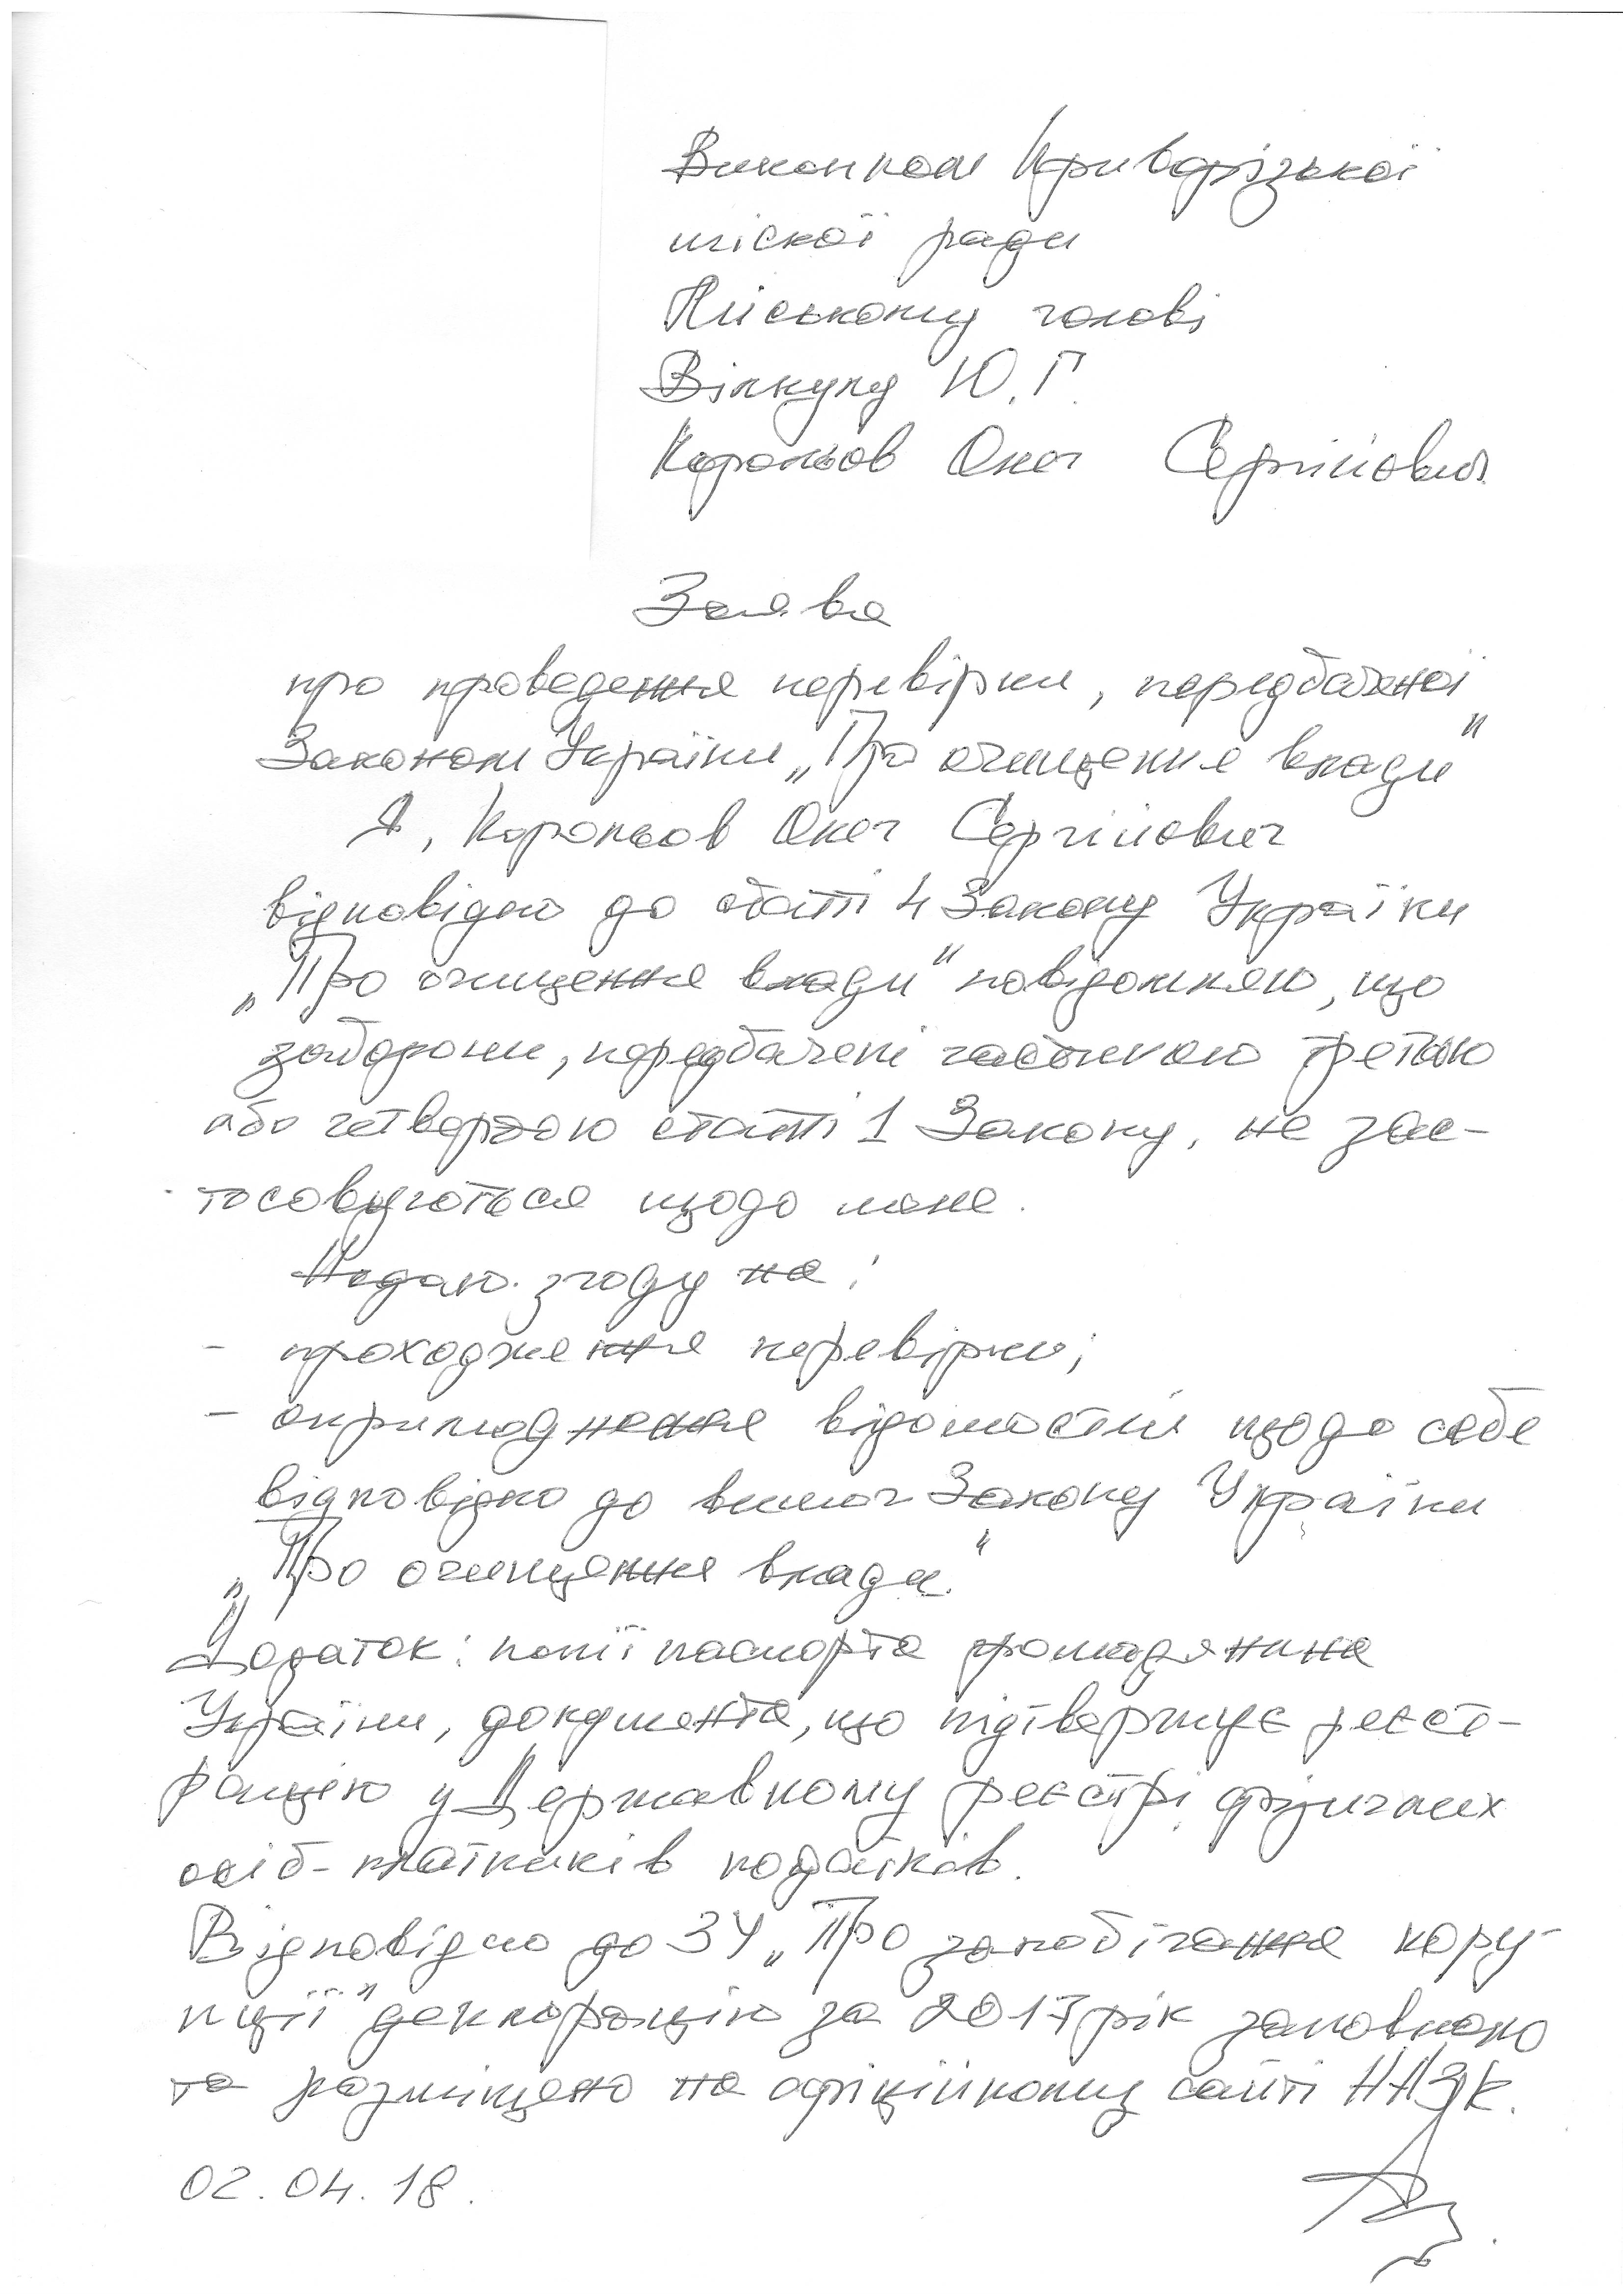 Виконком Криворізької
міскої ради
Міському голові
Вілкулу Ю.Г.
Корольов Олег Сергійович
Заява
про проведення перевірки, передбаченої
Законом України „Про очищення влади"
Я, Корольов Олег Сергійович
відповідно до статті 4 Закону України
„Про очищення влади" повідомляю, що
заборони, передбачені частиною третьою
або четвертою статті 1 Закону, не зас-
тосовуються щодо мене.
Надаю згоду на:
- проходження перевірки;
- оприлюднення відомостей щодо себе
відповідно до вимог Закону України
„Про очищення влади."
Додаток: копії паспорта громадянина
України, документа, що підтверджує реєст-
рацію у Державному реєстрі фізичних
осіб-платників податків.
Відповідно до ЗУ „Про запобігання кору-
пції" декларацію за 2017 рік заповнено
та розміщено на офіційному сайті НАЗК.
02.04.18.